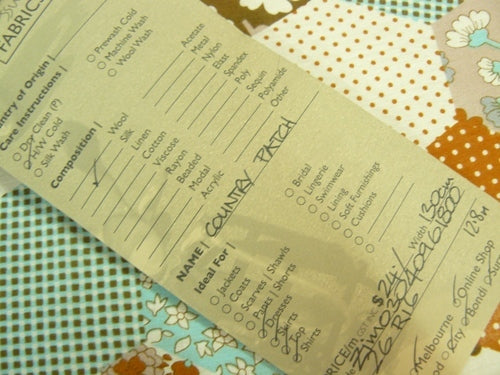 FABRICS
ntry of Origin |
Care Instructions |
Dry Clean (P)
H/W Cold
Silk Wash
Prewash Cold
Machine Wash
Wool Wash
Composition |
Wool
Silk
Linen
Cotton
Viscose
Rayon
Beaded
Modal
Acrylic
Acetate
Metal
Nylon
Elast
Spandex
Poly
Sequin
Polyamide
Other
NAME | COUNTRY PATCH
Ideal For |
Jackets
Coats
Scarves | Shawls
Pants | Shorts
Dresses
Skirts
Top
Shirts
Bridal
Lingerie
Swimwear
Lining
Soft Furnishings
Cushions
RICE/m $24-/ Width 130cm
Melbourne Online Shop
City Bondi
128m